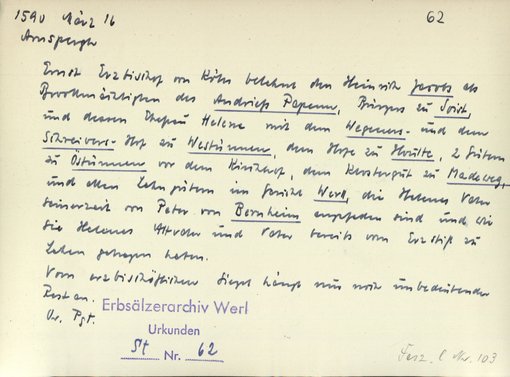 1590 März 16
62
Arnspergh
Ernst Erzbischof von Köln belehnt den Heinrich Jacobs als
Bevollmächtigten des Andriess Papenn, Bürgers zu Soist,
und dessen Ehefrau Helene mit dem Wegeners- und dem
Schreivers-Hof zu Westünnen, dem Hofe zu Houlte, 2 Gütern
zu Ostünnen vor dem Kirchhof, dem Klostergut zu Madeweg,
und allen Lehngütern im Gericht Werl, die Helenes Vater
seinerzeit von Peter von Bernheim empfangen sind und wie
sie Helenes Altvater und Vater bereits vom Erzstift zu
Lehen getragen haben.
Vom erzbischöflichen Siegel hängt nur noch unbedeutender
Rest an.
Or. Pgt.
Erbsälzerarchiv Werl
Urkunden
St Nr. 62
Nr. 103